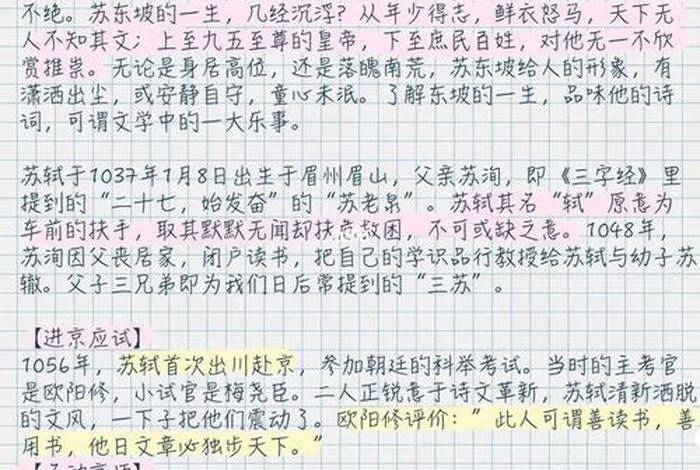 不绝。苏东坡的一生，几经沉浮？从年少得志，鲜衣怒马，天下无
人不知其文；上至九五至尊的皇帝，下至庶民百姓，对他无一不欣
赏推崇。无论是身居高位，还是落魄南荒，苏东坡给人的形象，有
潇洒出尘，或安静自守，童心未泯。了解东坡的一生，品味他的诗
词，可谓文学中的一大乐事。
苏轼于1037年1月8日出生于眉州眉山，父亲苏洵，即《三字经》里
提到的“二十七，始发奋”的“苏老泉”。苏轼其名“轼”原意为
车前的扶手，取其默默无闻却扶危救困，不可或缺之意。1048年，
苏洵因父丧居家，闭户读书，把自己的学识品行教授给苏轼与幼子苏
辙。父子三兄弟即为我们日后常提到的“三苏”。
【进京应试】
1056年，苏轼首次出川赴京，参加朝廷的科举考试。当时的主考官
是欧阳修，小试官是梅尧臣。二人正锐意于诗文革新，苏轼清新洒脱
的文风，一下子把他们震动了。欧阳修评价：”此人可谓善读书，善
用书，他日文章必独步天下。”